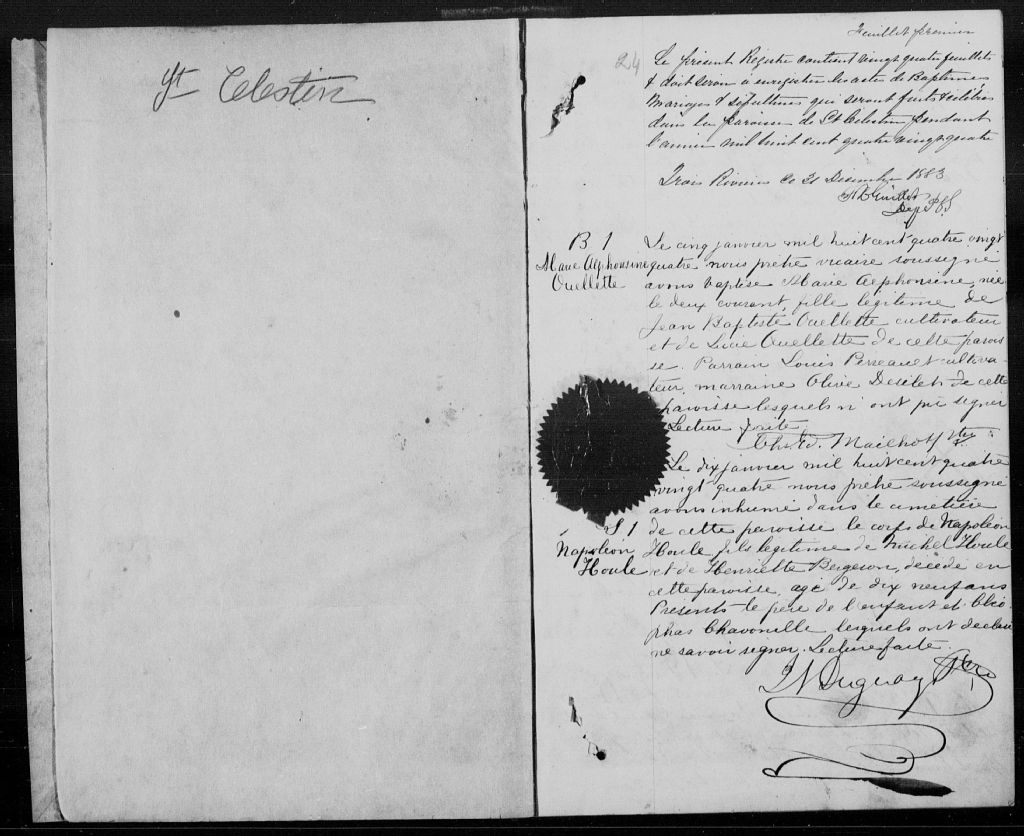 St Celestin
Feuillet premier
24
Le présent Registre contient vingt quatre feuillets
& doit servir à enregistrer les actes de Baptêmes
Mariages & sépultures qui seront faits & célébrés
dans la paroisse de St Celestin pendant
l'année mil huit cent quatre vingt quatre
Trois Rivières ce 31 Decembre 1883
Dep P C S
B 1
Marie Alphonsine
Ouellette
Le cinq janvier mil huit cent quatre vingt
quatre nous prêtre vicaire soussigné
avons baptisé Marie Alphonsine, née
le deux courant, fille légitime de
Jean Baptiste Ouellette cultivateur
et de Lucie Ouellette de cette parois
se. Parrain Louis Perreault cultiva-
teur, marraine Olive Desilets de cette
paroisse lesquels n'ont pu signer
Lecture faite
Chs. Ed. Mailhot Ptr
S 1
Napoléon
Houle
Le dix janvier mil huit cent quatre
vingt quatre nous prêtre soussigné
avons inhumé dans le cimetière
de cette paroisse le corps de Napoléon
Houle fils légitime de Michel Houle
et de Henriette Bergeron, décédé en
cette paroisse, agé de dix neuf ans
Présents le père de l'enfant et Cléo
phas Chavonille lesquels ont déclaré
ne savoir signer. Lecture faite.
Duguay Ptre